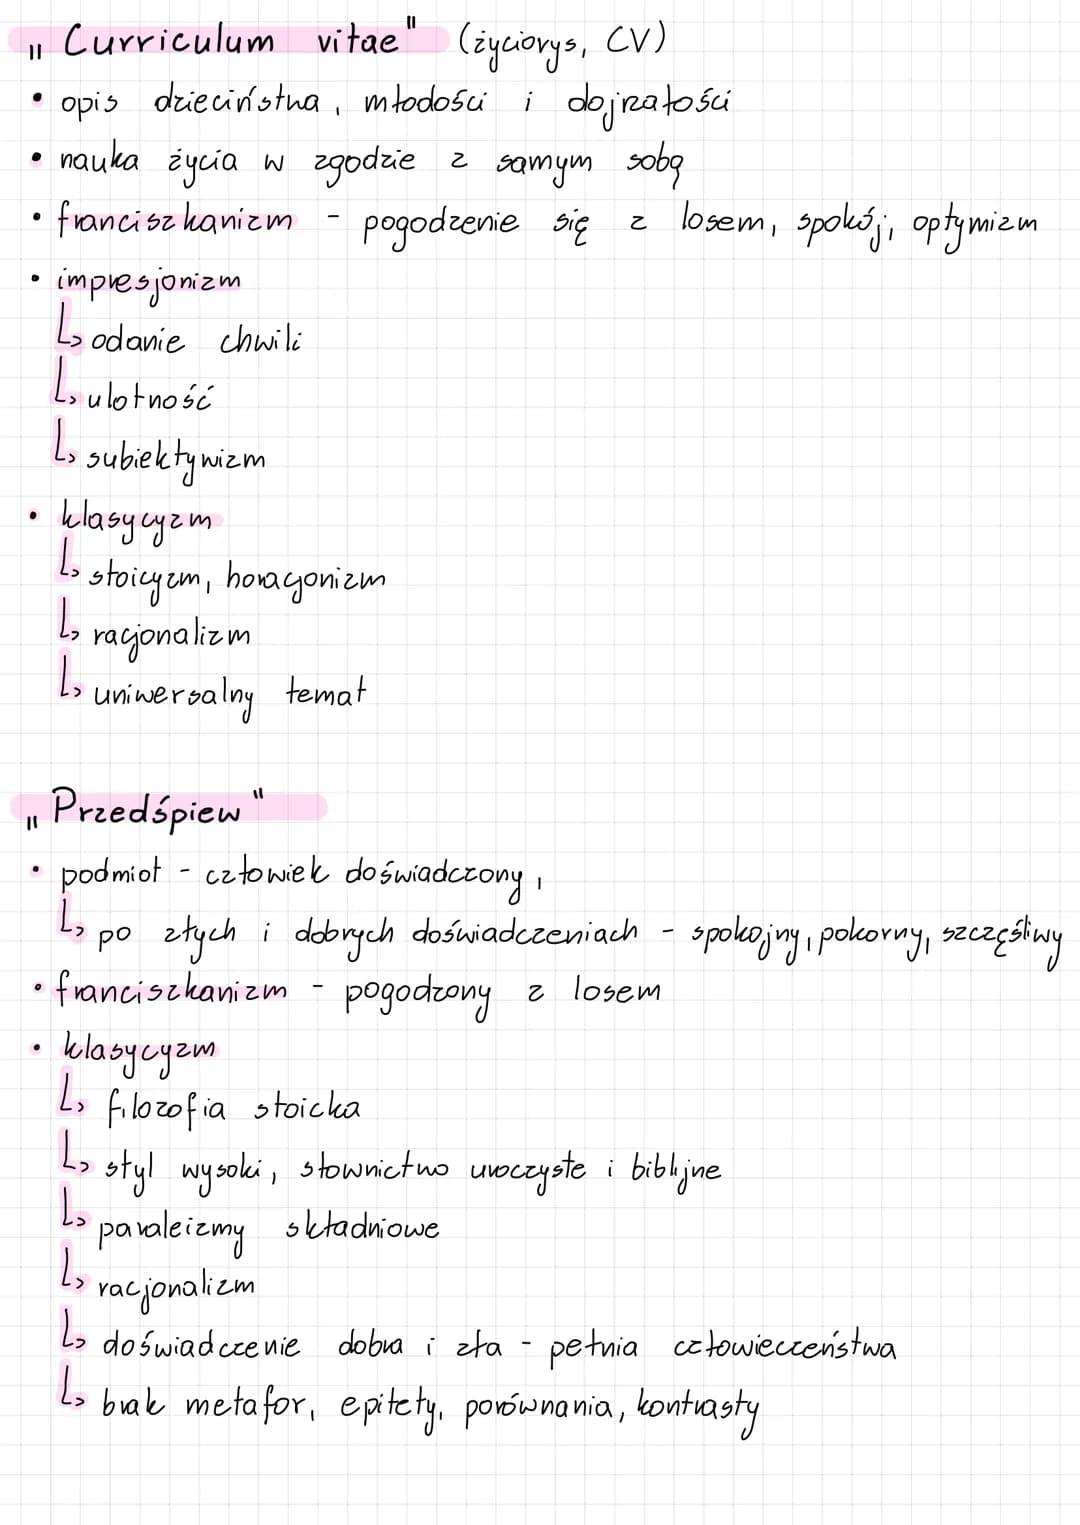 „Curriculum vitae" (życiorys, CV)
• opis dzieciństwa, młodości i dojrzałości
• nauka życia w zgodzie z samym sobą
• franciszkanizm - pogodzenie się z losem, spokój, optymizm
• impresjonizm
↳ odanie chwili
↳ ulotność
↳ subiektywizm
• klasycyzm
↳ stoicyzm, horacjonizm
↳ racjonalizm
↳ uniwersalny temat
„Przedśpiew"
• podmiot - człowiek doświadczony,
↳ po złych i dobrych doświadczeniach - spokojny, pokorny, szczęśliwy
• franciszkanizm - pogodzony z losem
• klasycyzm
↳ filozofia stoicka
↳ styl wysoki, słownictwo uroczyste i biblijne
↳ paraleizmy składniowe
↳ racjonalizm
↳ doświadczenie dobra i zła - pełnia człowieczeństwa
↳ brak metafor, epitety, porównania, kontrasty